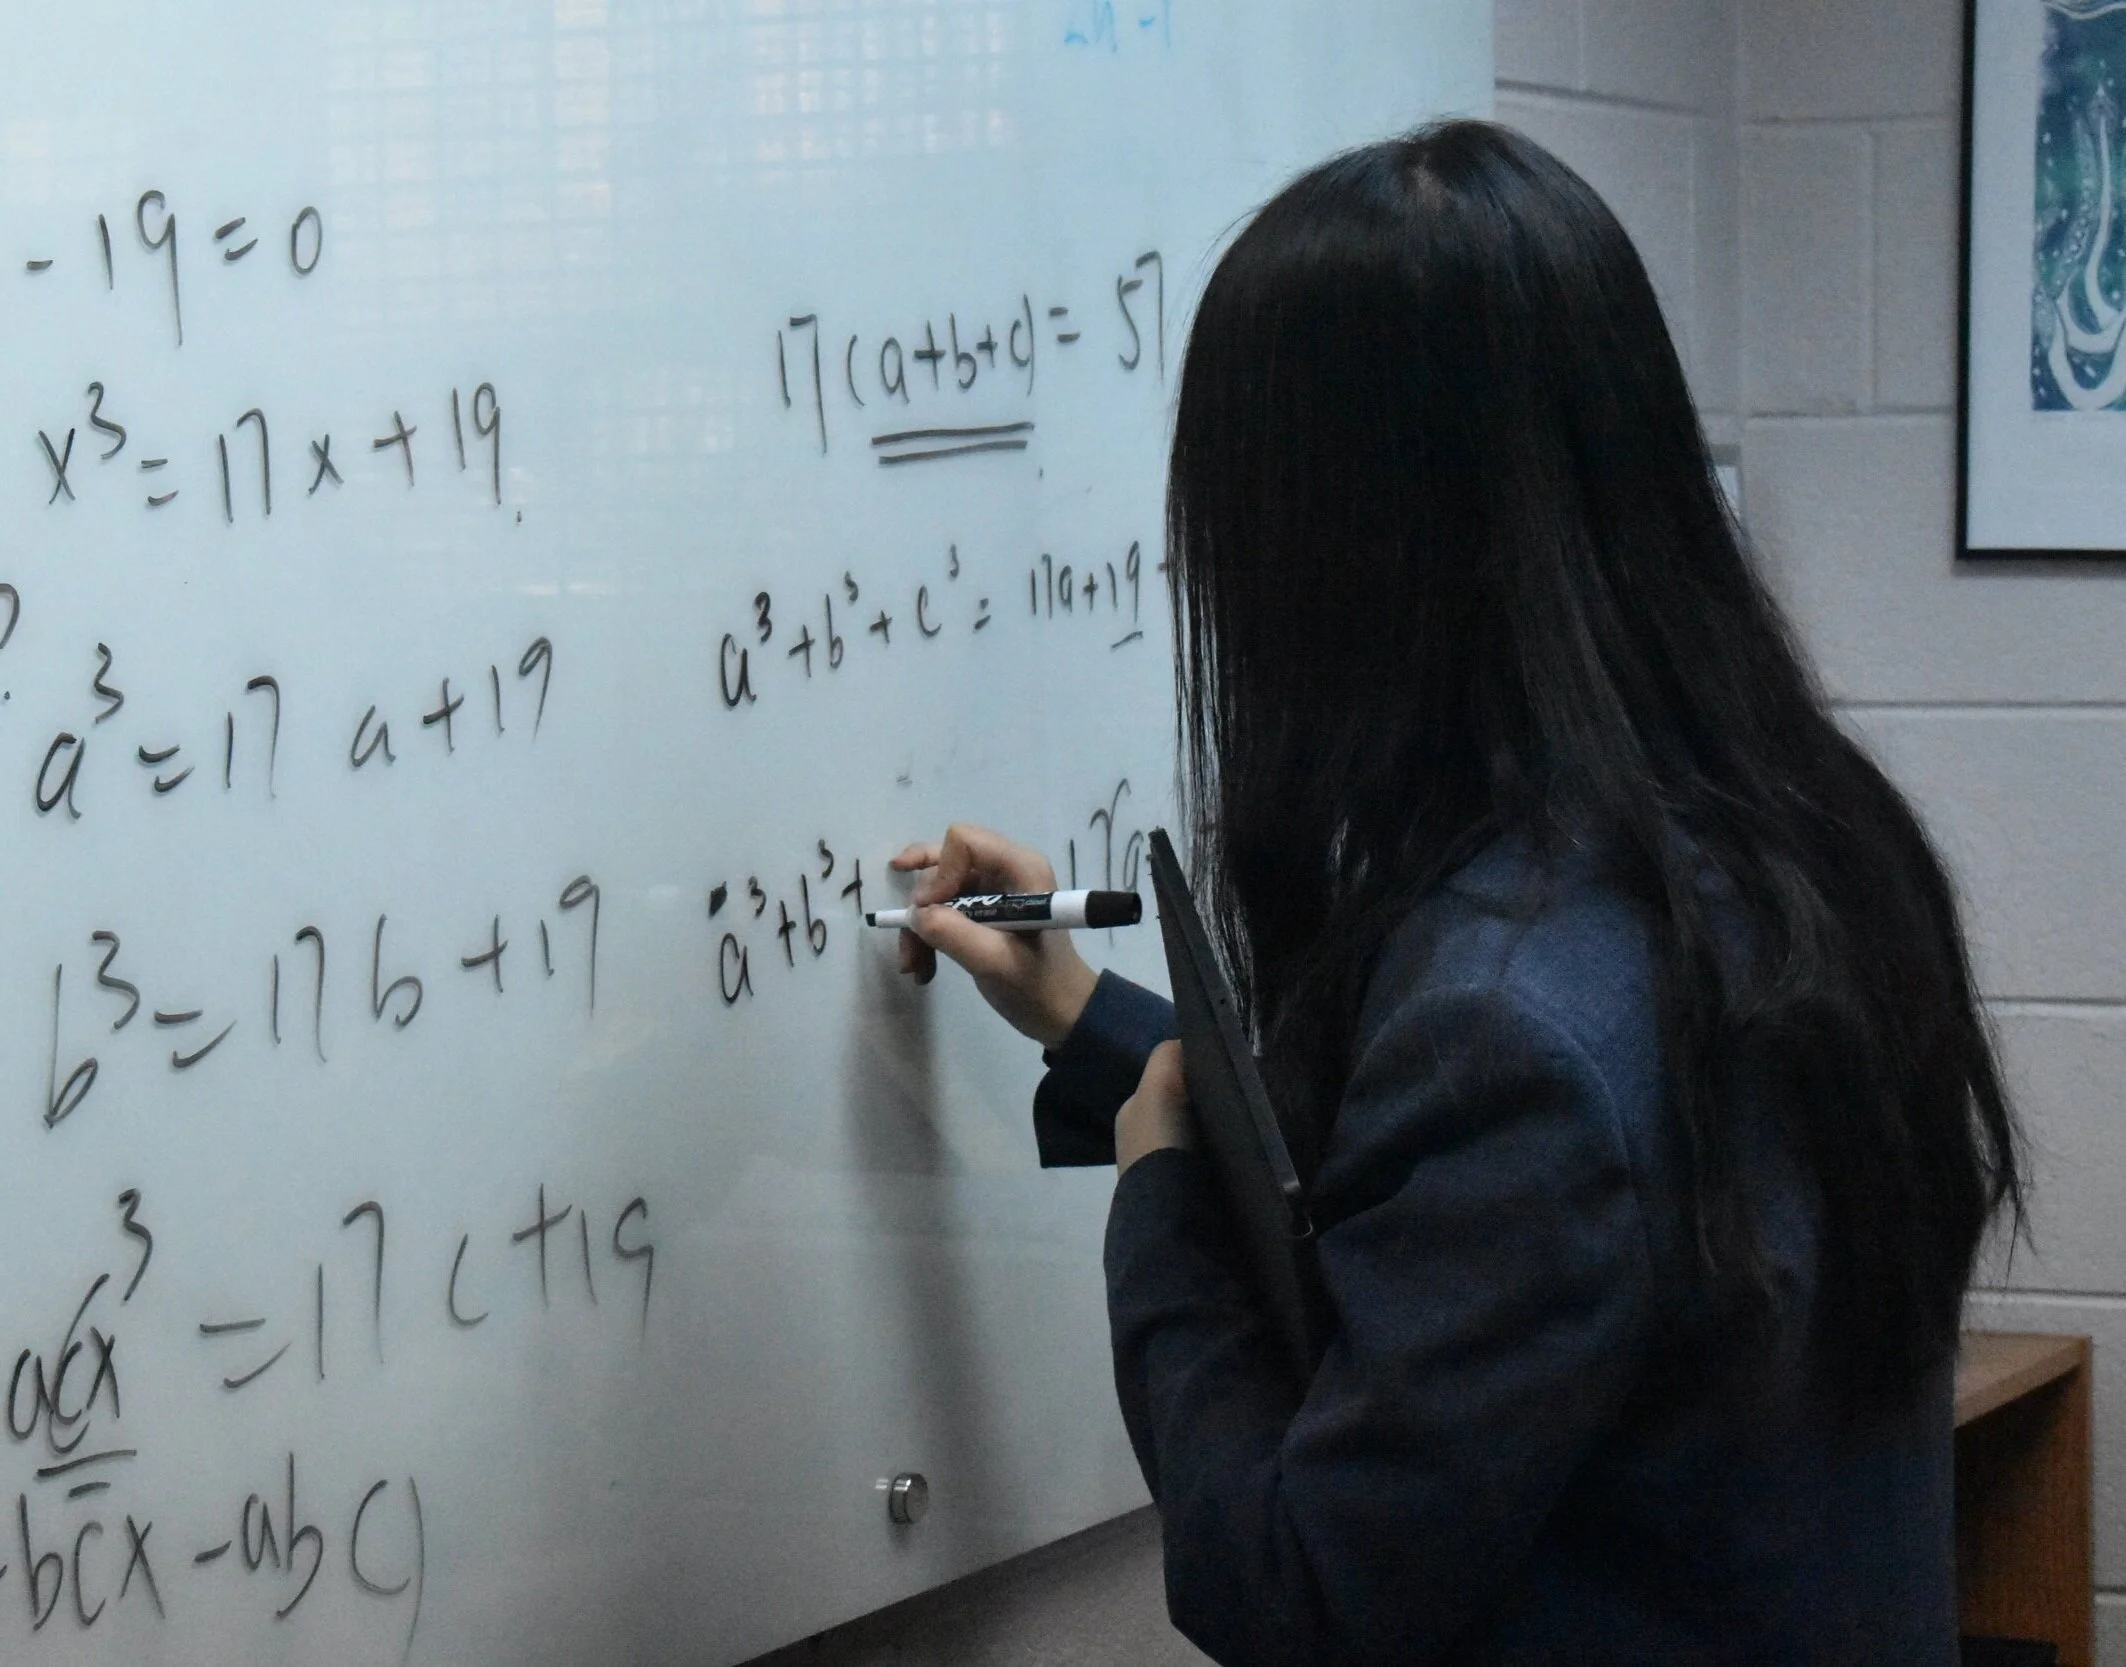 - 19 = 0
x³ = 17x + 19
a³ = 17 a + 19
b³ = 17 b + 19
³ = 17 c + 19
bcx - abc)
17 (a+b+c) = 57
a³ + b³ + c³ = 17a + 19
a³ + b³ +
EXPO